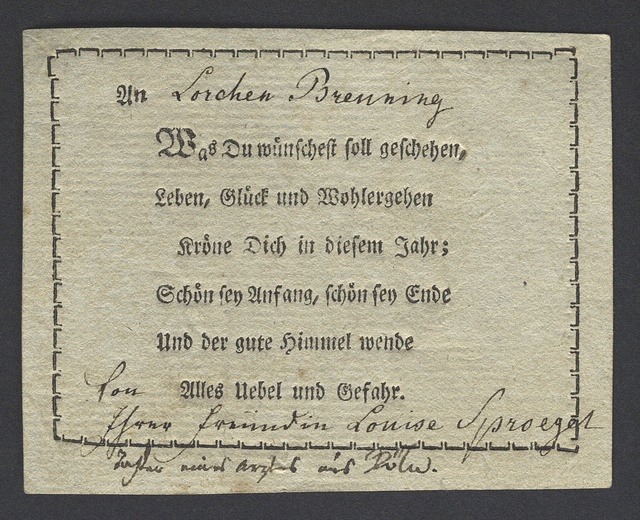 An Lorchen Breuning
Was Du wünschest soll geschehen,
Leben, Glück und Wohlergehen
Kröne Dich in diesem Jahr;
Schön sey Anfang, schön sey Ende
Und der gute Himmel wende
Alles Uebel und Gefahr.
Von
Ihrer Freündin Louise Sproegel
Tochter eines Arztes aus Köln.